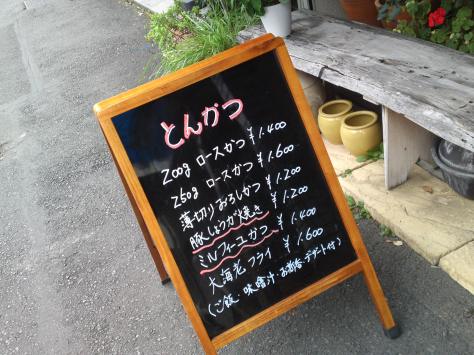 とんかつ
200g ロースかつ ¥1.400
250g ロースかつ ¥1.600
薄切りおろしかつ ¥1.200
豚しょうが焼き ¥1.200
ミルフィーユかつ ¥1.400
大海老フライ ¥1.600
(ご飯・味噌汁・お新香・デザート付)